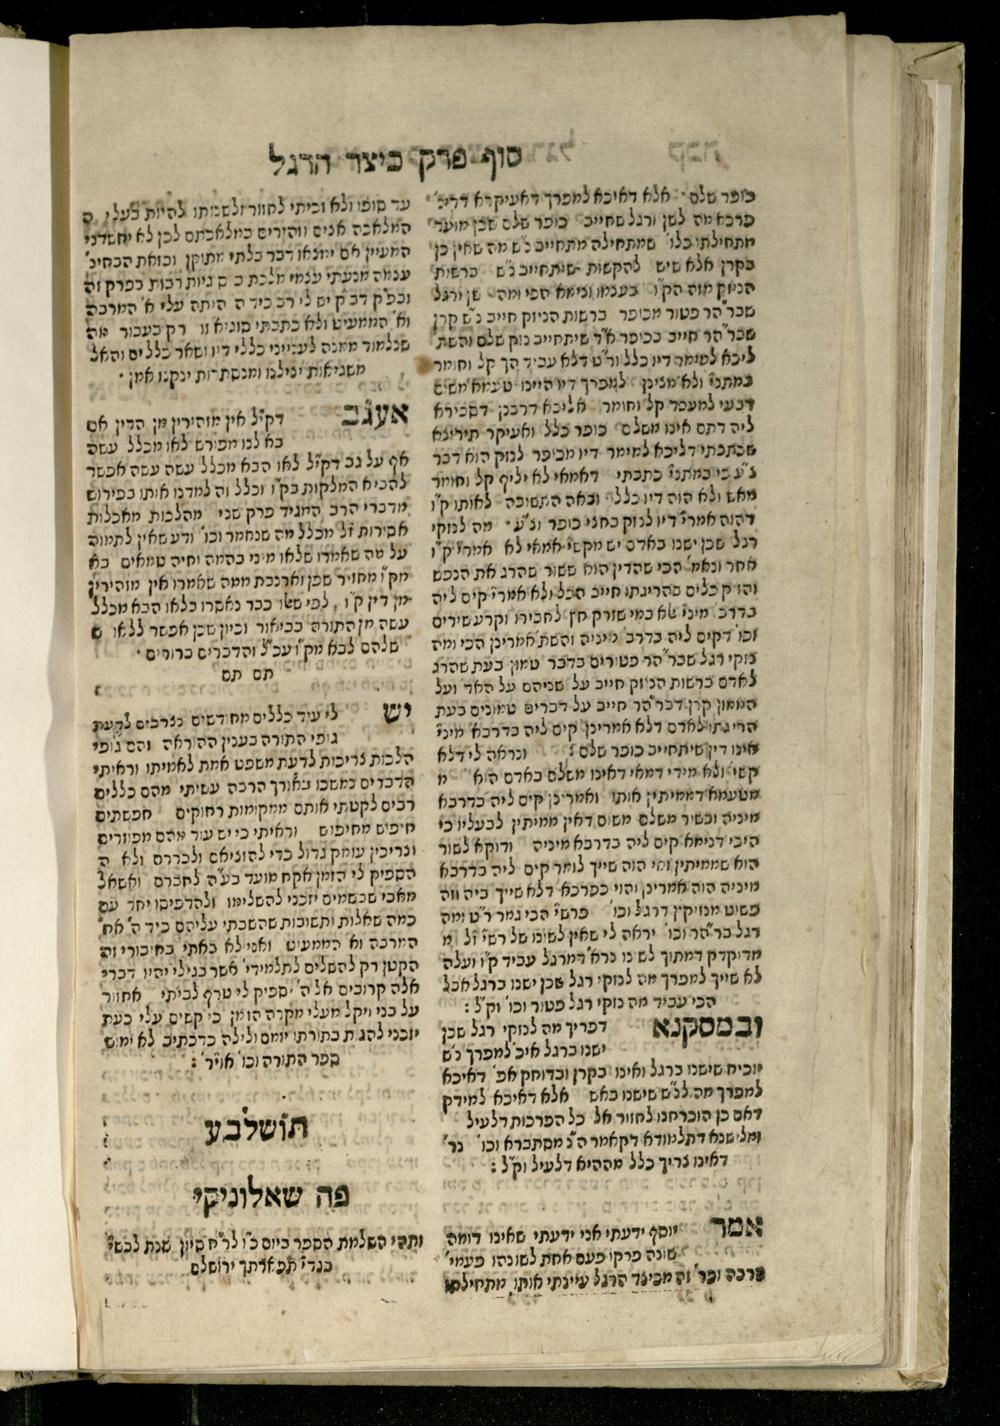 סוף פרק כיצד הרגל
כופר שלם אלא דאיכא למפרך דאעיקרא דדי'
פרכא מה לשן ורגל שחייב כופר שלם שכן מועד
מתחילתו כלו' שמתחילה מתחייב נ"ש מה שאין כן
בקרן אלא שיש להקשות שיתחייב נ"ש ברשות
הניזק מזה הק"ו בעצמו ונימא הכי ומה שן ורגל
שבר"הר פטור מכופר ברשות הניזק חייב נ"ש קרן
שבר"הר חייב בכופר א"ד שיתחייב נזק שלם והשת'
ליכא למימר דיו כלל ור"ט דלא עביד הך קל וחומר
במתני' ולא מצינן למפרך דיו היינו טעמא משום
דבעי למעבד קל וחומר אליבא דרבנן דסבירא
ליה דתם אינו משלם כופר כלל ואעיקר תירוצא
שכתבתי דליכא למימר דיו מכופר לנזק הוא דבר
צ"ע כי במתני' כתבתי דאמאי לא יליף קל וחומר
מאש ולא הוה דיו כלל ובאה התשובה לאותו ק"ו
דהוה אמרי' דיו לנזק בחצי כופר וצ"ע מה לנזקי
רגל שכן ישנו באדם יש מקשי' אמאי לא אמרי' ק"ו
אחר ונאמ' הכי שהדין הוא ששור שהרג את הנפש
והזיק כלים בהריגתו חייב הכל ולא אמרי' קים ליה
בדרב' מיני' טא במי שזורק חץ לחבירו וקרע שירים
וכו' דקים ליה בדרב' מיניה והשת' אמרינן הכי ומה
נזקי רגל שבר"הר פטורים בדבר טמון בעת שהרג
לאדם ברשות הניזק חייב על שניהם על האד' ועל
הממון קרן דבר"הר חייב על דברים טמונים בעת
הריגתו לאדם דלא אמרינן קים ליה בדרבא מיני'
אינו דין שיתחייב כופר שלם : ונראה לי דלא
קשי' ולא מידי דמאי דאינו משלם באדם הוא מ
מטעמא דממיתין אותו ואמרינן קים ליה בדרבא
מיניה ובשור משלם משום דאין ממיתין לבעליו כי
היכי דנימא קים ליה בדרבא מיניה ודוקא לשור
הוא שממיתין ומי הוה שייך לומר קים ליה בדרבא
מיניה הוה אמרינן והוי כפרכא דלא שייך ביה וזה
פשוט מנזיקין דרגל וכו' פרש"י הכי גמר ר"ט ומה
רגל בר"הר וכו' יראה לי שאין לשונו של רש"י ז"ל מ
מדוקדק דמתוך לשונו נרא' דמרגל עביד ק"ו ועלה
לא שייך למפרך מה לנזקי רגל שכן ישנו ברגל אבל
הכי עביד מה נזקי רגל פטור וכו' וק"ל :
ובמסקנא דפריך מה לנזקי רגל שכן
ישנו ברגל איכ' למפרך נ"ש
יוכיח שישנו ברגל ואינו בקרן ובדוחק אפ' דאיכא
למפרך מה לנ"ש שישנו באש אלא דאיכא למידק
דאם כן הוכרחנו לחזור אל כל הפרכות דלעיל
ומלישנא דתלמודא דקאמר ה"נ מסתברא וכו' נר'
דאינו צריך כלל מההיא דלעיל וק"ל :
אמר יוסף ידעתי אני ידעתי שאינו דומה
שונה פרקו פעם אחת לשונהו פעמי'
הרבה ופר' זה מכיצד הרגל עיינתי אותו מתחילתו
עד סופו ולא זכיתי לחזור ולשנותו להיות בעלי ה
המלאכה אצים וזהירים במלאכתם לכן לא יחשדני
המעיין אם ימצאו דבר בלתי מתוקן ובזאת הבחינ'
עצמה מנעתי עצמי מלכת ב סוגיות רבות בפרק זה
ובפ"ק דב"ק יש לי רב ביד ה היתה עלי א' המרבה
וא' הממעיט ולא כתבתי סוגיא זו רק בעבור מה
שנלמוד ממנה לענייני כללי דיו ושאר כללים והאל
משגיאות יצילנו ומנסתרות ינקנו אמן
אעגב דק"ל אין מזהירין מן הדין אם
בא לנו מפורש לאו מכלל עשה
אף על גב דק"ל לאו הבא מכלל עשה עשה אפשר
להביא המלקות בק"ו וכלל זה למדנו אותו בפירוש
מדברי הרב המגיד פרק שני מהלכות מאכלות
אסורות ז"ל מכלל מה שנחמר וכו' ודע שאין לתמוה
על מה שאמרו שלאו מיני בהמה וחיה טמאים בא
מק"ו מחזיר שפן וארנבת ממה שאמרו אין מזהירין
מן דין ק"ו לפי שלו כבר נאסרו בלאו הבא מכלל
עשה מן התורה בביאור וכיון שכן אפשר ללאו ש
שלהם לבא מק"ו עכ"ל והדברים ברורים
תם תם
יש לי עוד כללים מחודשים נצרכים לדעת
גופי התורה בענין ההוראה והם גופי
הלכות צריכות לדעת משפט אמת לאמיתו וראיתי
הדברים נמשכו באורך הרבה עשיתי מהם כללים
רבים לקטתי אותם ממקומות רחוקים חפשתים
חיפוש מחיפוש וראיתי כי יש עוד מהם מפוזרים
וצריכין עומק גדול כדי להוציאם ולבררם ולא ה
הספיק לי הזמן אקח מועד בע"ה לחברם ואשאל
מאבי שבשמים יזכני להשלימו ולהדפיסו יחד עם
כמה שאלות ותשובות שהשבתי עליהם כיד ה' אח'
המרבה וא הממעיט ואני לא באתי בחיבורי זה
הקטן רק להשלים לתלמידי' אשר בגילי יהיו דברי
אלה קרובים אל ה' יספיק לי טרף לביתי אחזור
על בני ויקל מעלי מקרה הזמן כי קשים עלי כעת
יזכני להגות בתורתו יומם ולילה כדכתיב לא ימוש
ספר התורה וכו' אויר' :
תושלבע
פה שאלוניקי
ותהי השלמת הספר ביום כ"ו לר"ח סיון שנת לבשי
בגדי תפארתך ירושלם